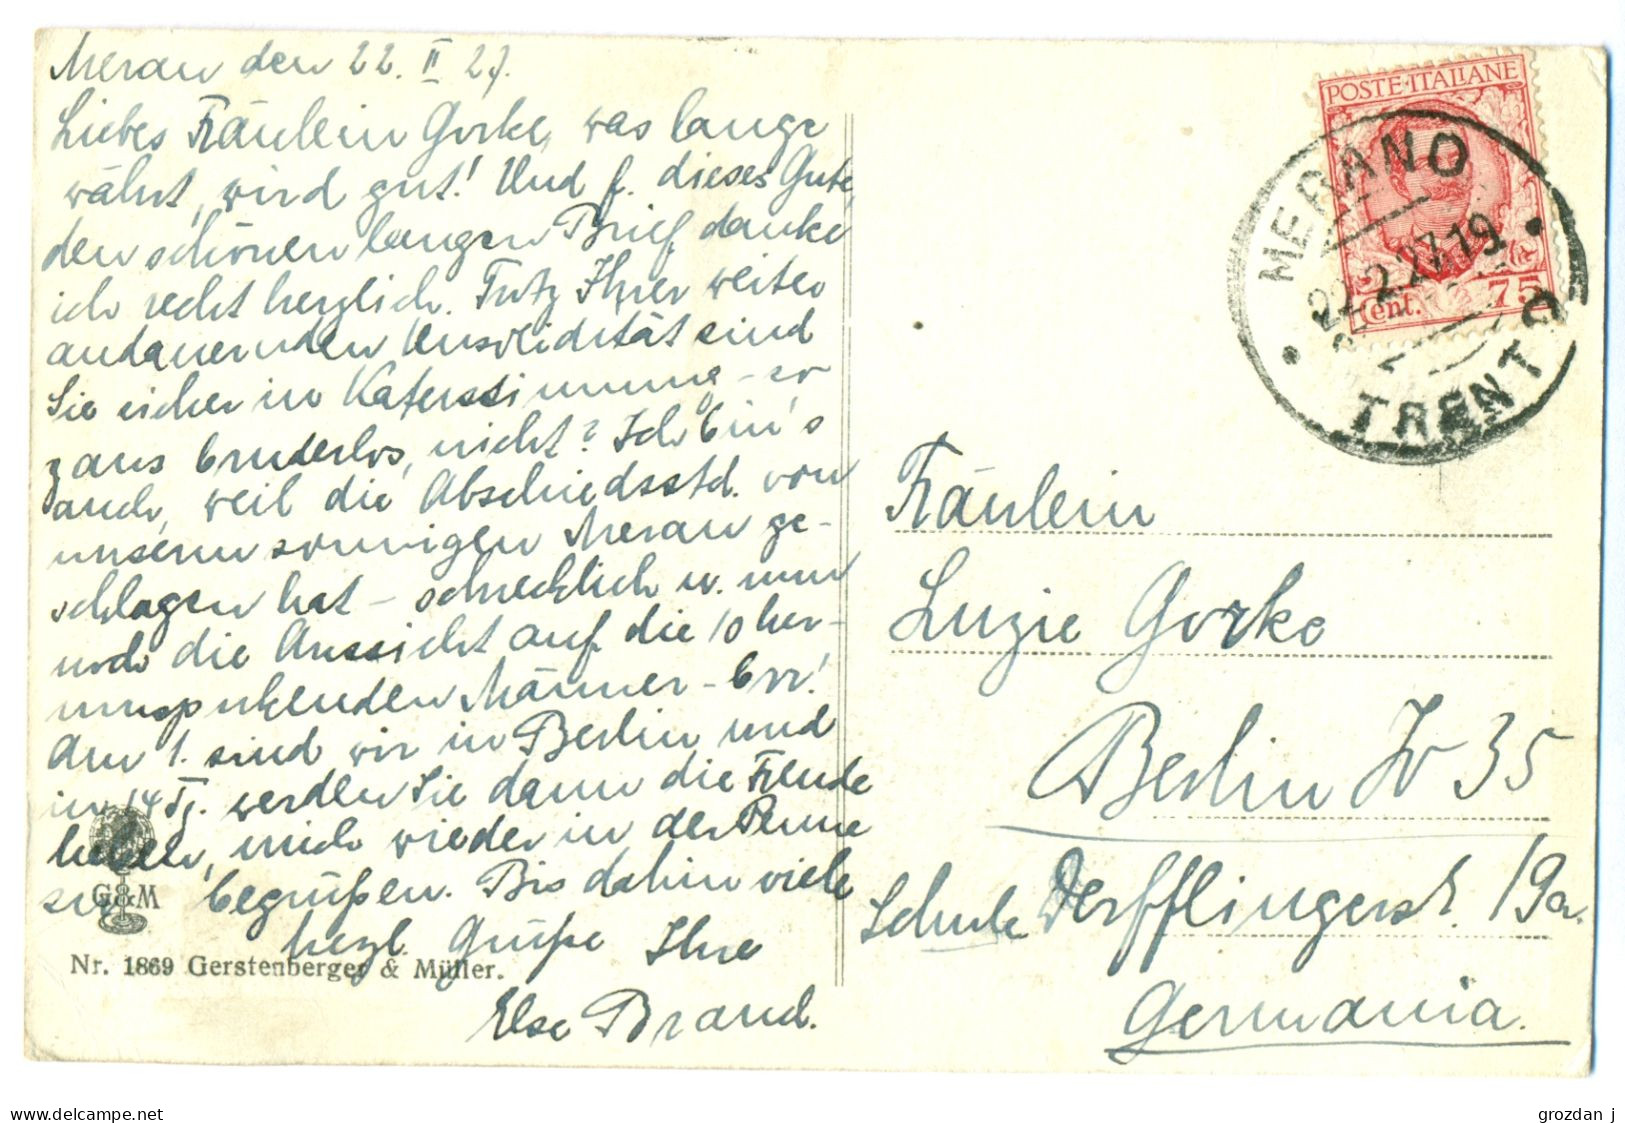 Meran den 22. II 27.
Liebes Fräulein Gorke, was lange
währt, wird gut! Und f. dieses Gute,
den schönen langen Brief danke
ich recht herzlich. Trotz Ihrer weiter
andauernden Unsolidität sind
Sie sicher in Katerstimmung – so
ganz bruderlos, nicht? Ich bin's
auch, weil die Abschiedsstd. von
unserm sonnigen Meran ge-
schlagen hat – schrecklich u. nun
noch die Aussicht auf die 10 her-
umspukenden Männer – brr!
Am 1. sind wir in Berlin und
in 14 Tg. werden Sie dann die Freude
haben, mich wieder in der Penne
zu begrüßen. Bis dahin viele
herzl. Grüße Ihre
Else Brand.
G&M
Nr. 1869 Gerstenberger & Müller.
POSTE·ITALIANE
Cent. 75
MERANO
22.2.27.19
TRENTO
Fräulein
Luzie Gorke
Berlin W 35
Schule Derfflingerst. 19a.
Germania.
grozdan j